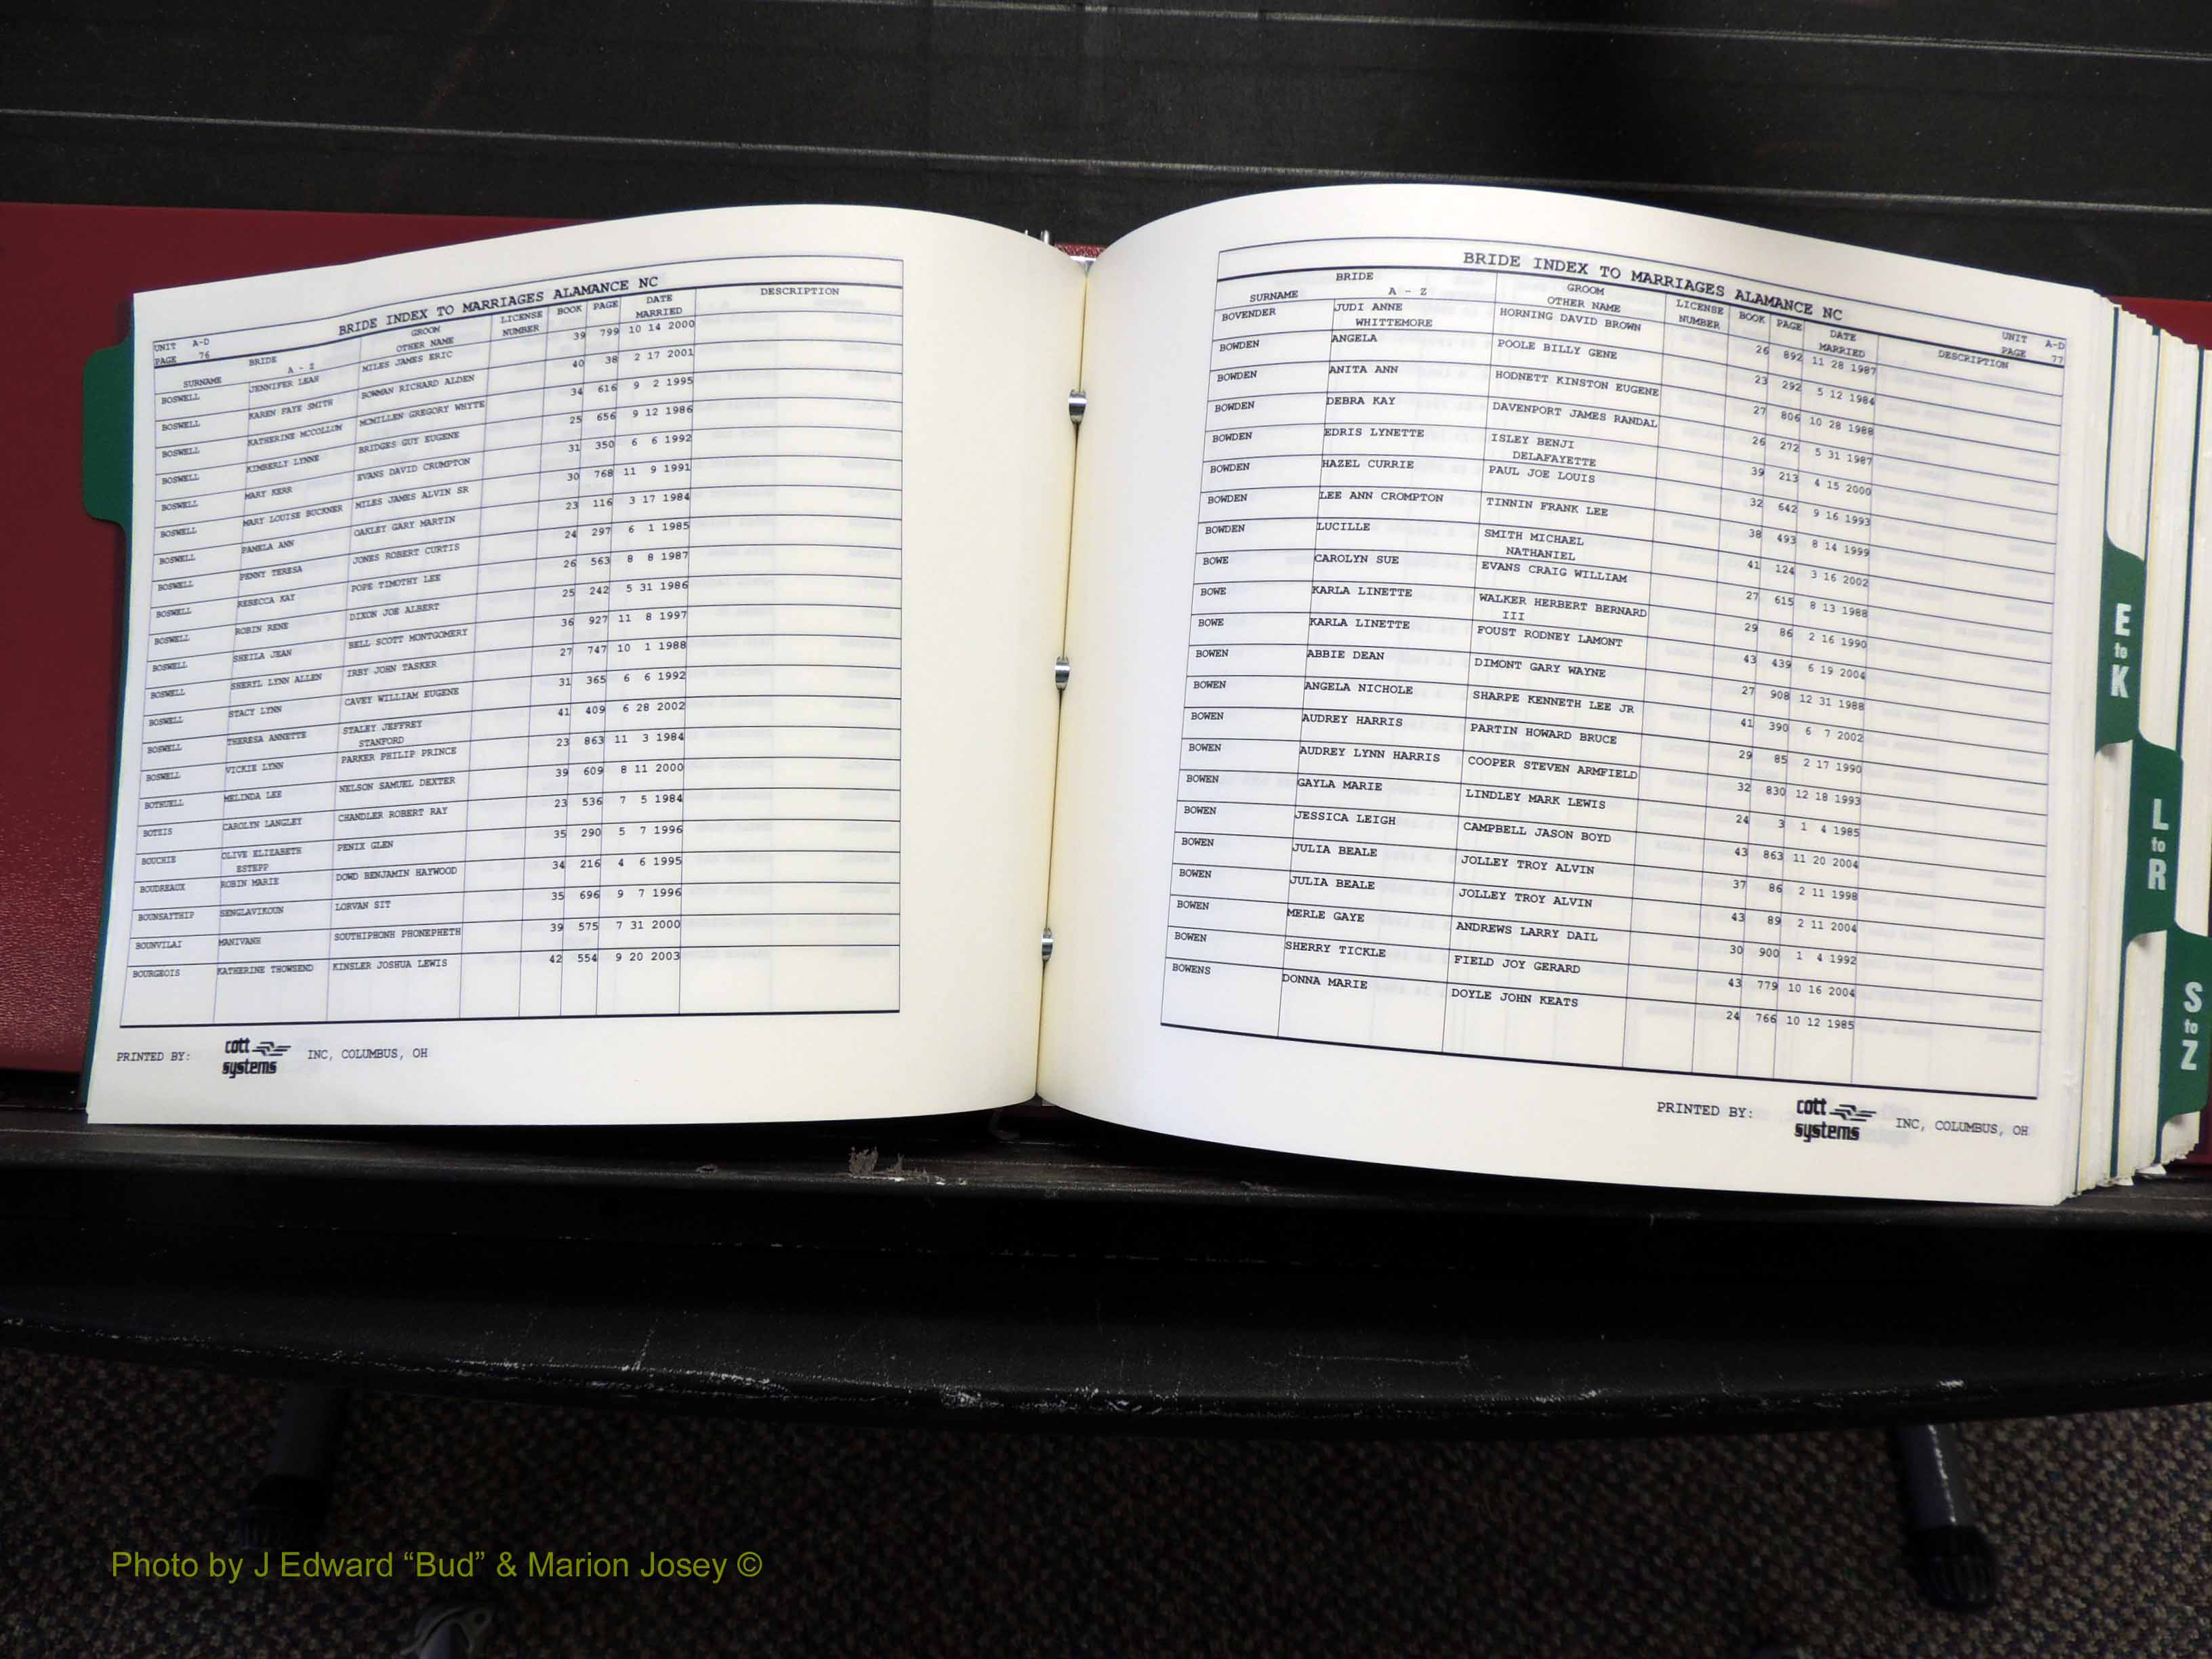 UNIT A-D
PAGE 76
BRIDE INDEX TO MARRIAGES ALAMANCE NC
SURNAME BRIDE A - Z GROOM OTHER NAME LICENSE NUMBER BOOK PAGE DATE MARRIED DESCRIPTION
BOSWELL JENNIFER LEAH MILES JAMES ERIC 39 799 10 14 2000
BOSWELL KAREN FAYE SMITH BOWMAN RICHARD ALDEN 40 38 2 17 2001
BOSWELL KATHERINE MCCOLLUM MCMILLEN GREGORY WHYTE 34 616 9 2 1995
BOSWELL KIMBERLY LYNNE BRIDGES GUY EUGENE 25 656 9 12 1986
BOSWELL MARY KERR EVANS DAVID CRUMPTON 31 350 6 6 1992
BOSWELL MARY LOUISE BUCKNER MILES JAMES ALVIN SR 30 768 11 9 1991
BOSWELL PAMELA ANN OAKLEY GARY MARTIN 23 116 3 17 1984
BOSWELL PENNY TERESA JONES ROBERT CURTIS 24 297 6 1 1985
BOSWELL REBECCA KAY POPE TIMOTHY LEE 26 563 8 8 1987
BOSWELL ROBIN RENE DIXON JOE ALBERT 25 242 5 31 1986
BOSWELL SHEILA JEAN BELL SCOTT MONTGOMERY 36 927 11 8 1997
BOSWELL SHERYL LYNN ALLEN IRBY JOHN TASKER 27 747 10 1 1988
BOSWELL STACY LYNN CAVEY WILLIAM EUGENE 31 365 6 6 1992
BOSWELL THERESA ANNETTE STALEY JEFFREY STANFORD 41 409 6 28 2002
BOSWELL VICKIE LYNN PARKER PHILIP PRINCE 23 863 11 3 1984
BOTHUELL MELINDA LEE NELSON SAMUEL DEXTER 39 609 8 11 2000
BOTTIS CAROLYN LANGLEY CHANDLER ROBERT RAY 23 536 7 5 1984
BOUCHIE OLIVE ELIZABETH ESTEPP PENIX GLEN 35 290 5 7 1996
BOUDREAUX ROBIN MARIE DOWD BENJAMIN HAYWOOD 34 216 4 6 1995
BOUNSAYTHIP SENGLAVIKOUN LORVAN SIT 35 696 9 7 1996
BOUNVILAI MANIVANH SOUTHIPHONH PHONEPHETH 39 575 7 31 2000
BOURGEOIS KATHERINE THOWSEND KINSLER JOSHUA LEWIS 42 554 9 20 2003
PRINTED BY: cott systems INC, COLUMBUS, OH
BRIDE INDEX TO MARRIAGES ALAMANCE NC
UNIT A-D
PAGE 77
SURNAME BRIDE A - Z GROOM OTHER NAME LICENSE NUMBER BOOK PAGE DATE MARRIED DESCRIPTION
BOVENDER JUDI ANNE WHITTEMORE HORNING DAVID BROWN 26 892 11 28 1987
BOWDEN ANGELA POOLE BILLY GENE 23 292 5 12 1984
BOWDEN ANITA ANN HODNETT KINSTON EUGENE 27 806 10 28 1988
BOWDEN DEBRA KAY DAVENPORT JAMES RANDAL 26 272 5 31 1987
BOWDEN EDRIS LYNETTE ISLEY BENJI DELAFAYETTE 39 213 4 15 2000
BOWDEN HAZEL CURRIE PAUL JOE LOUIS 32 642 9 16 1993
BOWDEN LEE ANN CROMPTON TINNIN FRANK LEE 38 493 8 14 1999
BOWDEN LUCILLE SMITH MICHAEL NATHANIEL 41 124 3 16 2002
BOWE CAROLYN SUE EVANS CRAIG WILLIAM 27 615 8 13 1988
BOWE KARLA LINETTE WALKER HERBERT BERNARD III 29 86 2 16 1990
BOWE KARLA LINETTE FOUST RODNEY LAMONT 43 439 6 19 2004
BOWEN ABBIE DEAN DIMONT GARY WAYNE 27 908 12 31 1988
BOWEN ANGELA NICHOLE SHARPE KENNETH LEE JR 41 390 6 7 2002
BOWEN AUDREY HARRIS PARTIN HOWARD BRUCE 29 85 2 17 1990
BOWEN AUDREY LYNN HARRIS COOPER STEVEN ARMFIELD 32 830 12 18 1993
BOWEN GAYLA MARIE LINDLEY MARK LEWIS 24 3 1 4 1985
BOWEN JESSICA LEIGH CAMPBELL JASON BOYD 43 863 11 20 2004
BOWEN JULIA BEALE JOLLEY TROY ALVIN 37 86 2 11 1998
BOWEN JULIA BEALE JOLLEY TROY ALVIN 43 89 2 11 2004
BOWEN MERLE GAYE ANDREWS LARRY DAIL 30 900 1 4 1992
BOWEN SHERRY TICKLE FIELD JOY GERARD 43 779 10 16 2004
BOWENS DONNA MARIE DOYLE JOHN KEATS 24 766 10 12 1985
PRINTED BY: cott systems INC, COLUMBUS, OH
E to K
L to R
S to Z
Photo by J Edward “Bud” & Marion Josey ©